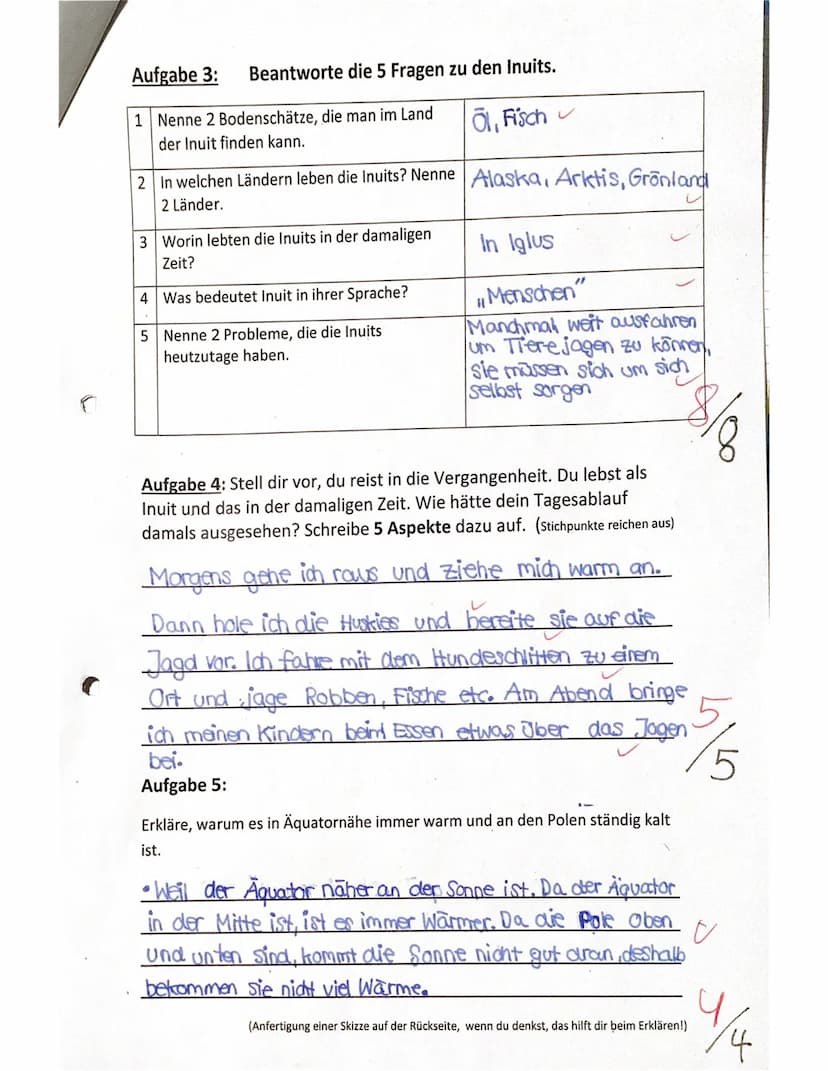 Aufgabe 3: Beantworte die 5 Fragen zu den Inuits.
1 Nenne 2 Bodenschätze, die man im Land der Inuit finden kann.
Öl, Fisch
2 In welchen Ländern leben die Inuits? Nenne 2 Länder.
Alaska, Arktis, Grönland
3 Worin lebten die Inuits in der damaligen Zeit?
In Iglus
4 Was bedeutet Inuit in ihrer Sprache?
„Menschen"
5 Nenne 2 Probleme, die die Inuits heutzutage haben.
Manchmal weit ausfahren
um Tiere jagen zu können,
sie müssen sich um sich
selbst sorgen
8/8
Aufgabe 4: Stell dir vor, du reist in die Vergangenheit. Du lebst als
Inuit und das in der damaligen Zeit. Wie hätte dein Tagesablauf
damals ausgesehen? Schreibe 5 Aspekte dazu auf. (Stichpunkte reichen aus)
Morgens gehe ich raus und ziehe mich warm an.
Dann hole ich die Huskies und bereite sie auf die
Jagd vor. Ich fahre mit dem Hundeschlitten zu einem
Ort und jage Robben, Fische etc. Am Abend bringe
ich meinen Kindern beim Essen etwas über das Jagen
bei.
5/5
Aufgabe 5:
Erkläre, warum es in Äquatornähe immer warm und an den Polen ständig kalt
ist.
• Weil der Äquator näher an der Sonne ist. Da der Äquator
in der Mitte ist, ist es immer Wärmer. Da die Pole oben
und unten sind, kommt die Sonne nicht gut dran, deshalb
bekommen sie nicht viel Wärme.
(Anfertigung einer Skizze auf der Rückseite, wenn du denkst, das hilft dir beim Erklären!)
4/4